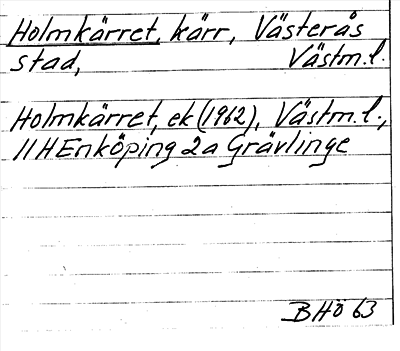 Holmkärret, kärr, Västerås
stad, Västm.l.
Holmkärret, ek (1962), Västm.l.,
11H Enköping 2a Grävlinge
BHö 63